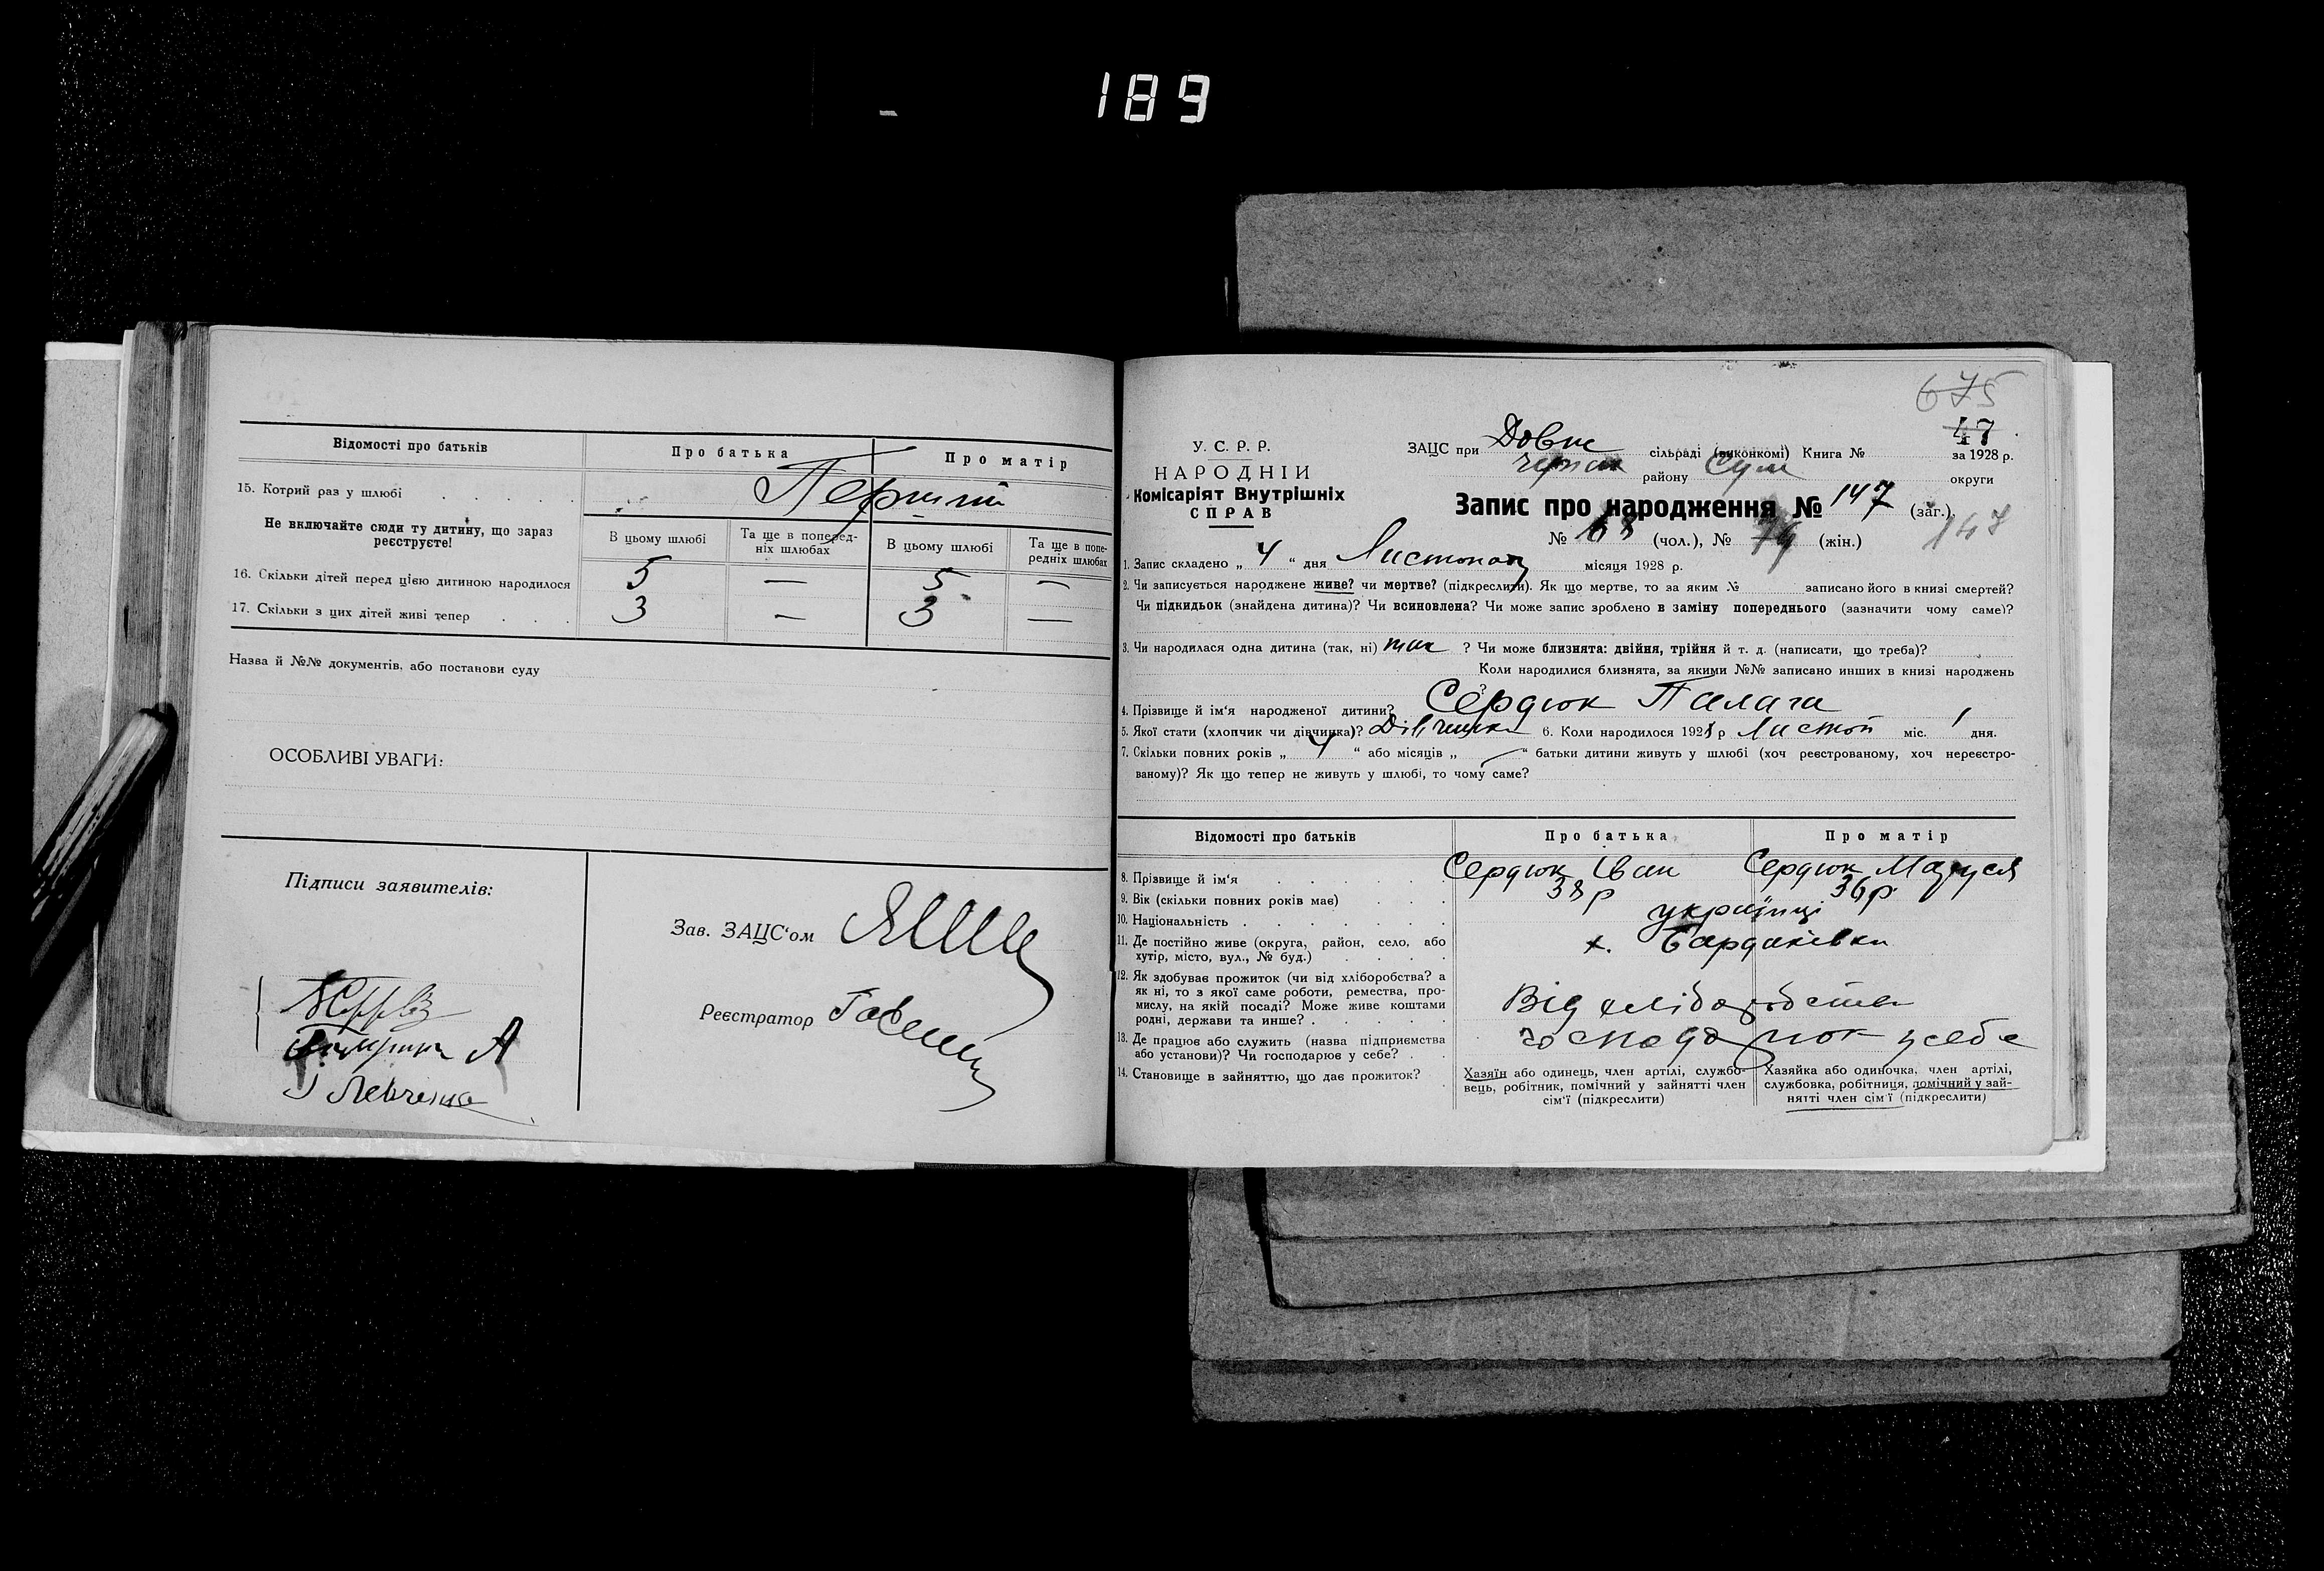 189
Відомості про батьків
Про батька
Про матір
15. Котрий раз у шлюбі
Перший
Не включайте сюди ту дитину, що зараз
реєструєте!
В цьому шлюбі
Та ще в поперед-
ніх шлюбах
В цьому шлюбі
Та ще в попе-
редніх шлюбах
16. Скільки дітей перед цією дитиною народилося
5 — 5 —
17. Скільки з цих дітей живі тепер
3 — 3 —
Назва й №№ документів, або постанови суду
ОСОБЛИВІ УВАГИ:
Підписи заявителів:
Зав. ЗАЦС'ом
Реєстратор
675
47
У. С. Р. Р.
НАРОДНІЙ
Комісаріят Внутрішніх
СПРАВ
ЗАЦС при Довж сільраді (виконкомі) Книга № за 1928 р.
району Сум округи
Запис про народження № 147 (заг.)
№ 68 (чол.), № 79 (жін.) 147
1. Запис складено „ 4 " дня Листопад місяця 1928 р.
2. Чи записується народжене живе? чи мертве? (підкреслити). Як що мертве, то за яким № записано його в книзі смертей?
Чи підкидьок (знайдена дитина)? Чи всиновлена? Чи може запис зроблено в заміну попереднього (зазначити чому саме)?
3. Чи народилася одна дитина (так, ні) так ? Чи може близнята: двійня, трійня й т. д. (написати, що треба)?
Коли народилися близнята, за якими №№ записано инших в книзі народжень
?
4. Прізвище й ім'я народженої дитини? Сердюк Палага
5. Якої стати (хлопчик чи дівчинка)? Дівчинка 6. Коли народилося 1928 р Листоп міс. 1 дня.
7. Скільки повних років „ 4 " або місяців „ — " батьки дитини живуть у шлюбі (хоч реєстрованому, хоч нереєстро-
ваному)? Як що тепер не живуть у шлюбі, то чому саме?
Відомості про батьків
Про батька
Про матір
8. Прізвище й ім'я
Сердюк Іван
Сердюк Маруся
9. Вік (скільки повних років має)
38 р
36 р
10. Національність
українці
11. Де постійно живе (округа, район, село, або
хутір, місто, вул., № буд.)
х. Бардаківка
12. Як здобуває прожиток (чи від хліборобства? а
як ні, то з якої саме роботи, ремества, про-
мислу, на якій посаді? Може живе коштами
родні, держави та инше?
Від хліборобства
13. Де працює або служить (назва підприємства
або установи)? Чи господарює у себе?
у себе
14. Становище в зайняттю, що дає прожиток?
Хазяїн або одинець, член артілі, службо-
вець, робітник, помічний у зайнятті член
сім'ї (підкреслити)
Хазяйка або одиночка, член артілі,
службовка, робітниця, помічний у зай-
нятті член сім'ї (підкреслити)